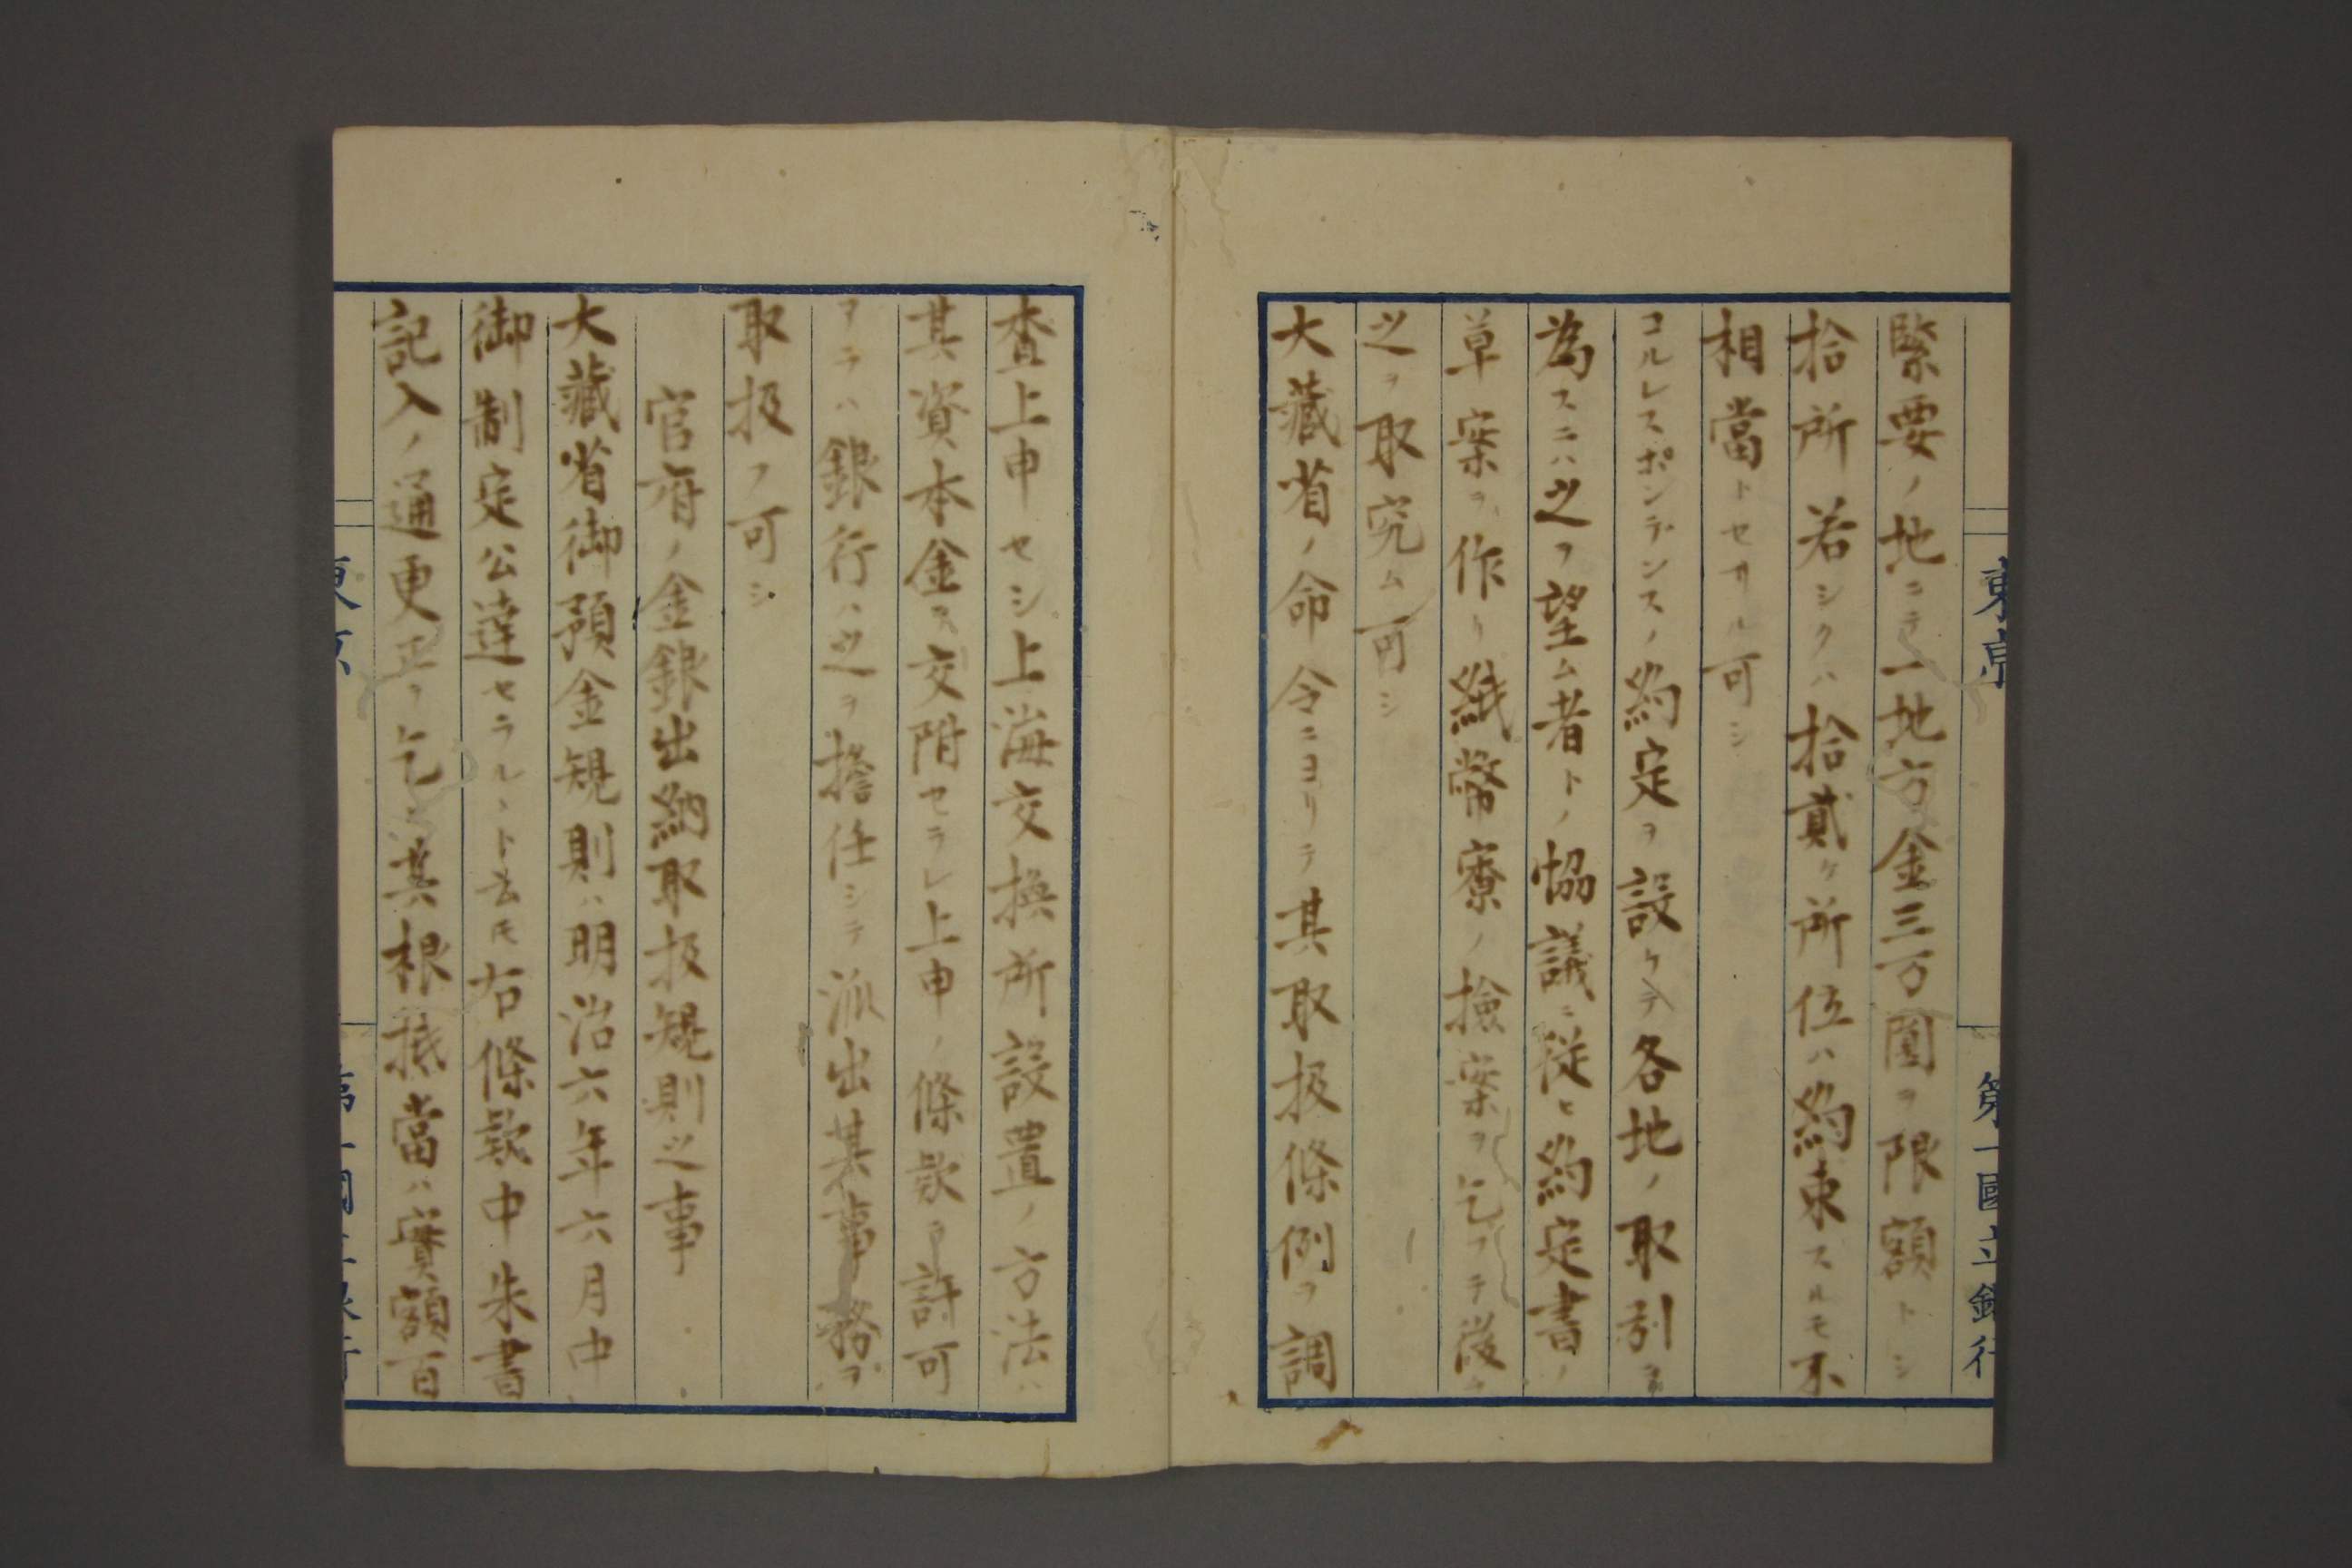 緊要ノ地ニテ一地方金三万圓ヲ限額トシ
拾所若シクハ拾貳ケ所位ハ約束スルモ不
相當トセサル可シ
コルレスポンデンスノ約定ヲ設ケテ各地ノ取引ヲ
為スニハ之ヲ望ム者トノ恊議ニ従ヒ約定書ノ
草案ヲ作リ紙幣寮ノ撿案ヲ乞フテ後
之ヲ取究ム可シ
大藏省ノ命令ニヨリテ其取扱條例ヲ調
査上申セシ上海交換所設置ノ方法ハ
其資本金ヲ交附セラレ上申ノ條款ヲ許可
アラハ銀行ハ之ヲ擔任シテ派出其事務ヲ
取扱フ可シ
官府ノ金銀出納取扱規則之事
大藏省御預金規則ハ明治六年六月中
御制定公達セラルヽト云モ右條款中朱書
記入ノ通更正ヲ乞ヒ其根抵當ハ實額百
東京
第一國立銀行
東京
第一國立銀行